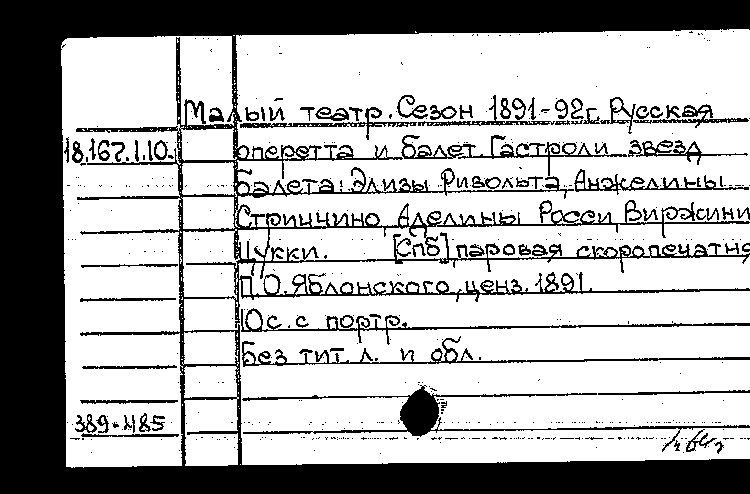 Малый театр. Сезон 1891-92г. Русская
18.167.1.10. оперетта и балет. Гастроли звезд
балета: Элизы Ривольта, Анжелины
Стриччино, Аделины Росси, Виржини
Цукки. [Спб] паровая скоропечатня
П.О. Яблонского, ценз. 1891.
10с. с портр.
Без тит. л. и обл.
389-485